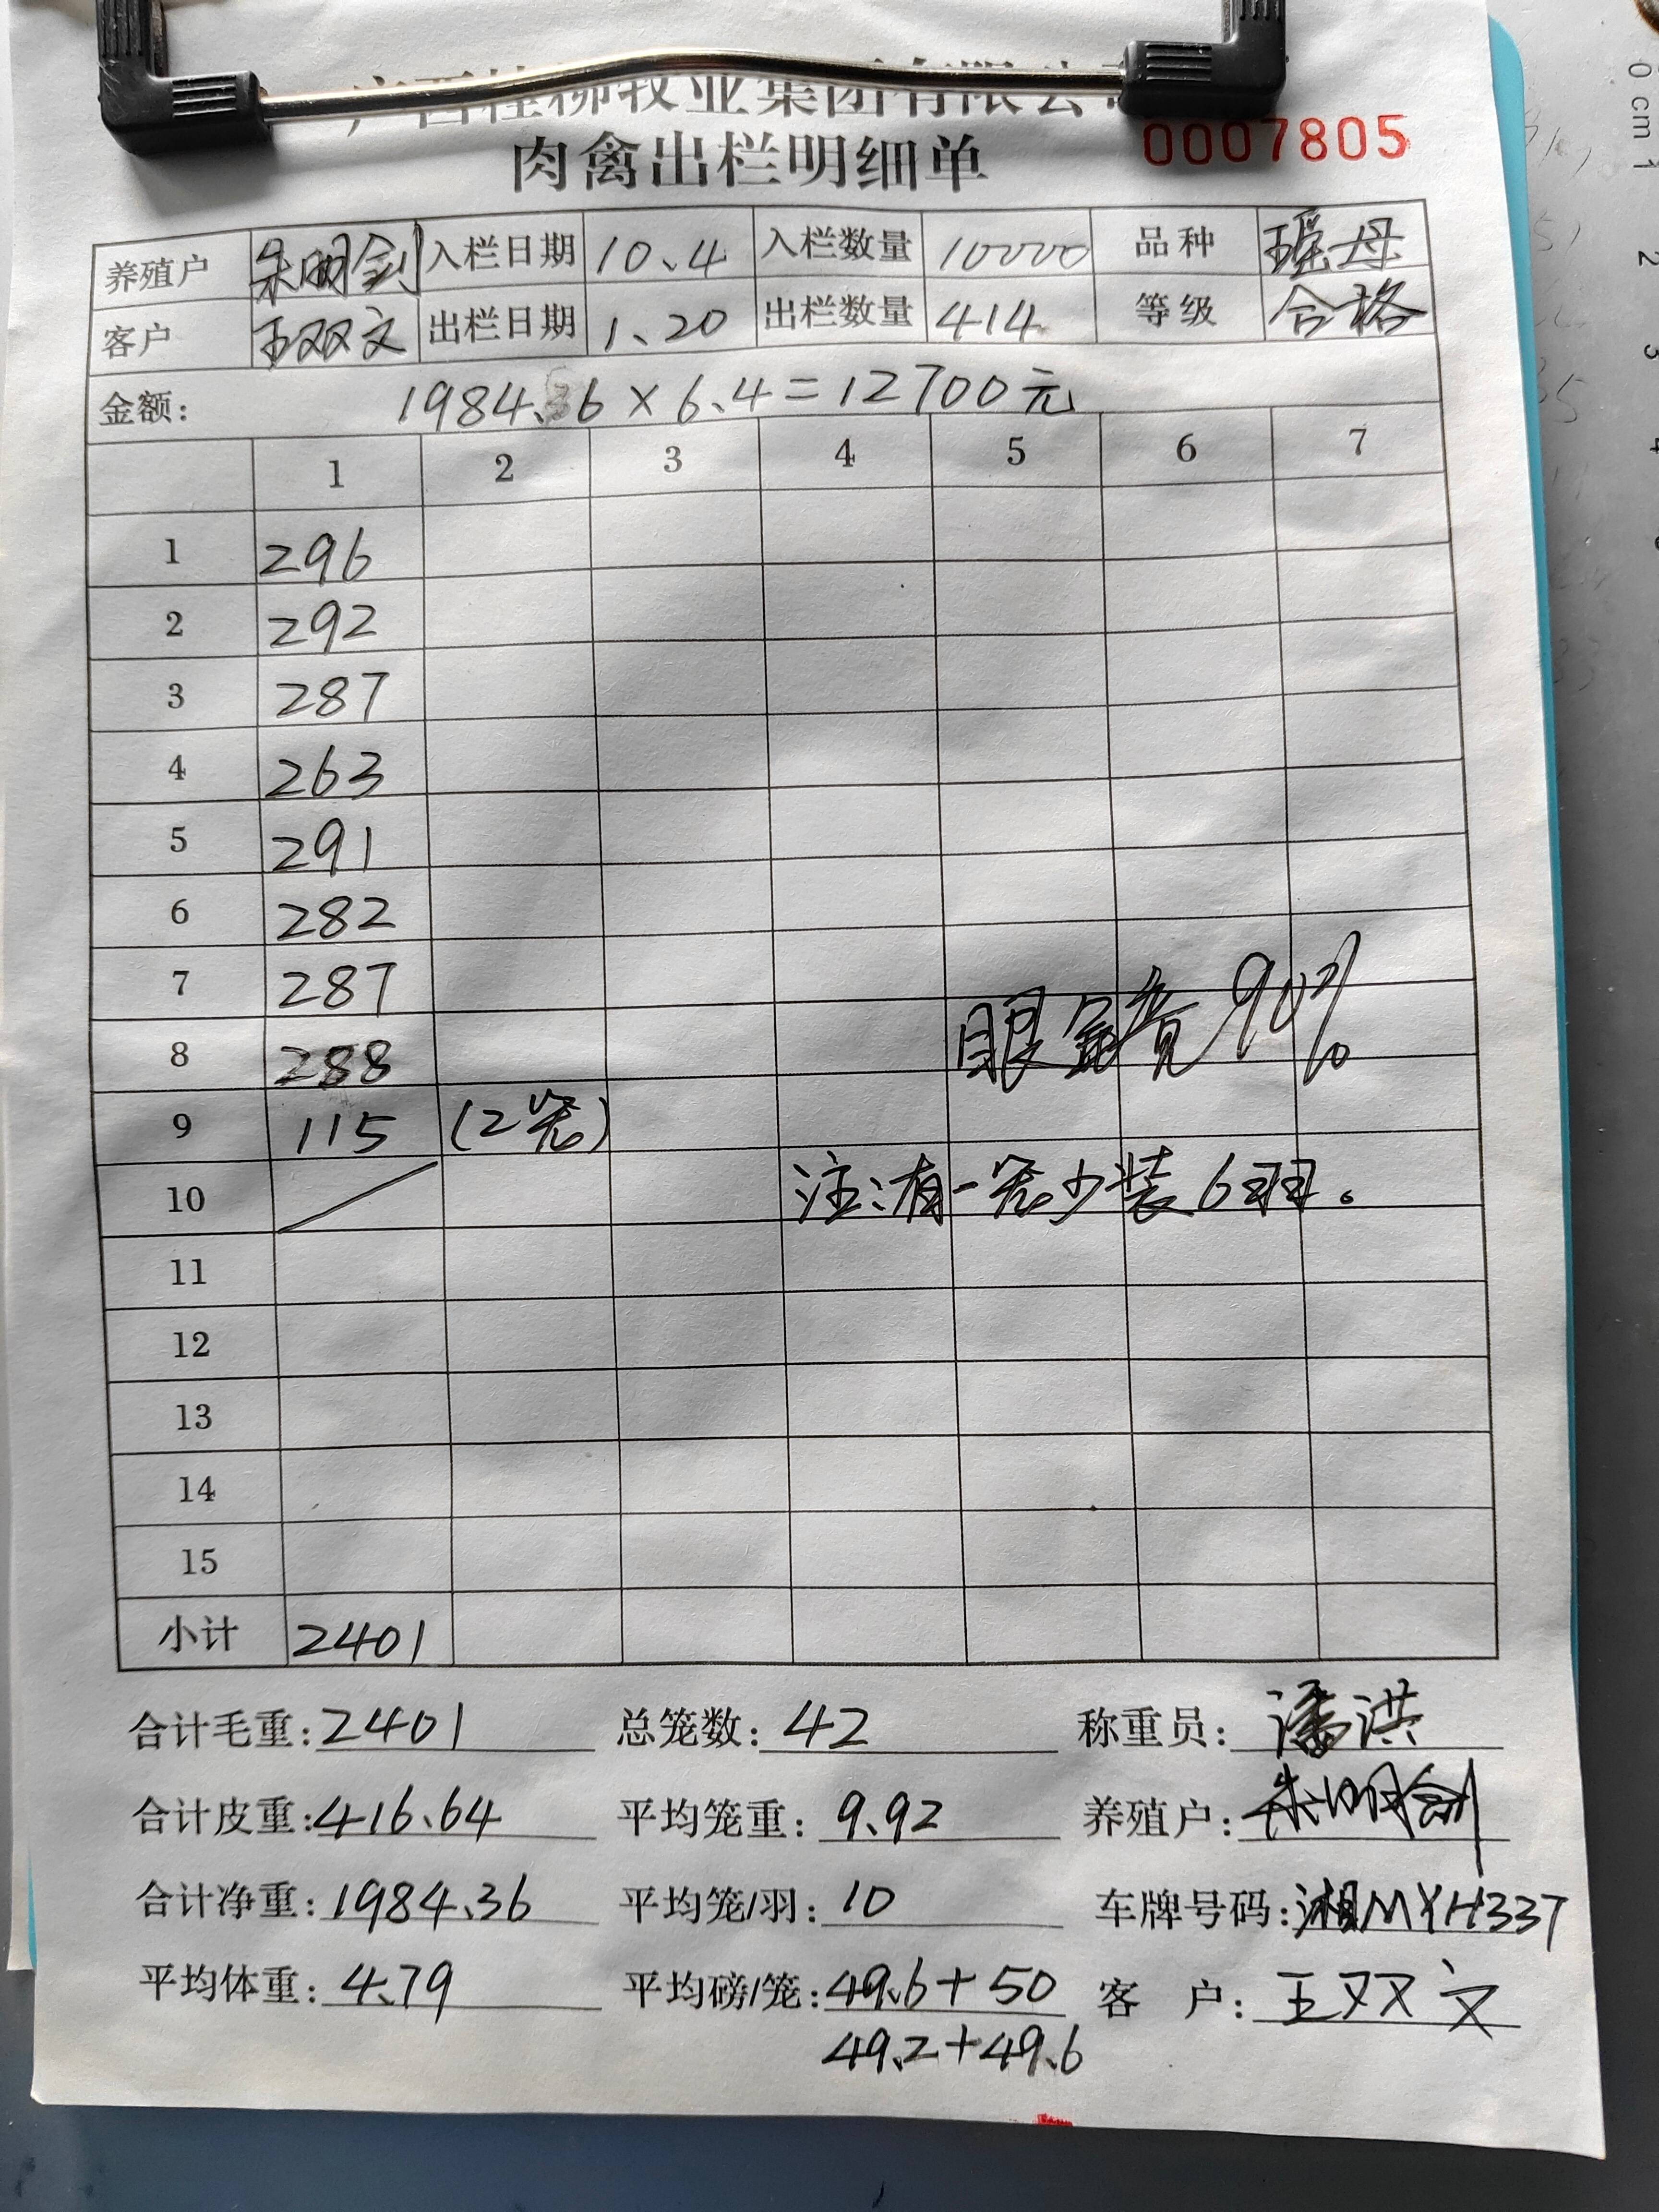 广西桂柳牧业集团有限公司
肉禽出栏明细单 0007805
养殖户 朱明剑 入栏日期 10.4 入栏数量 10000 品种 瑶母
客户 王双文 出栏日期 1.20 出栏数量 414 等级 合格
金额: 1984.36×6.4=12700元
1 2 3 4 5 6 7
1 296
2 292
3 287
4 263
5 291
6 282
7 287 90%
8 288 眼
9 115 (2笼)
10 注:有一笼少装6羽。
11
12
13
14
15
小计 2401
合计毛重: 2401 总笼数: 42 称重员: 潘洪
合计皮重: 416.64 平均笼重: 9.92 养殖户: 朱明剑
合计净重: 1984.36 平均笼/羽: 10 车牌号码: 湘MYH337
平均体重: 4.79 平均磅/笼: 49.6+50 客户: 王双文
49.2+49.6
0 cm 1
2
3
4